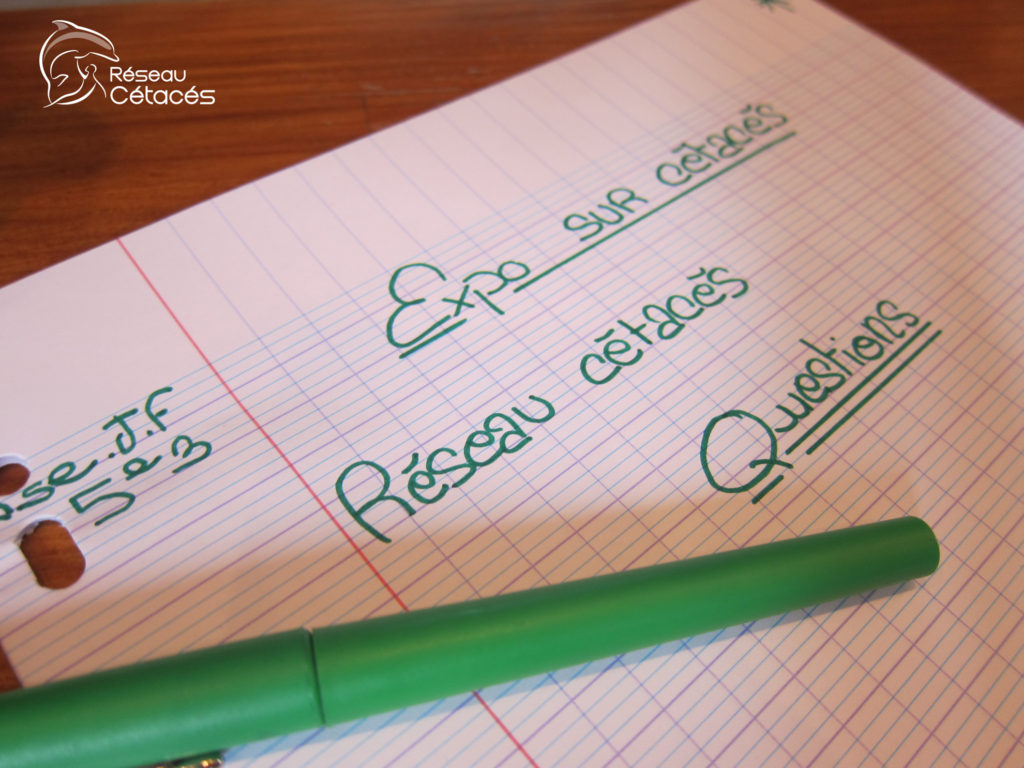 Réseau
Cétacés
Expo sur cétacés
Réseau cétacés
Questions
J.F
5e3